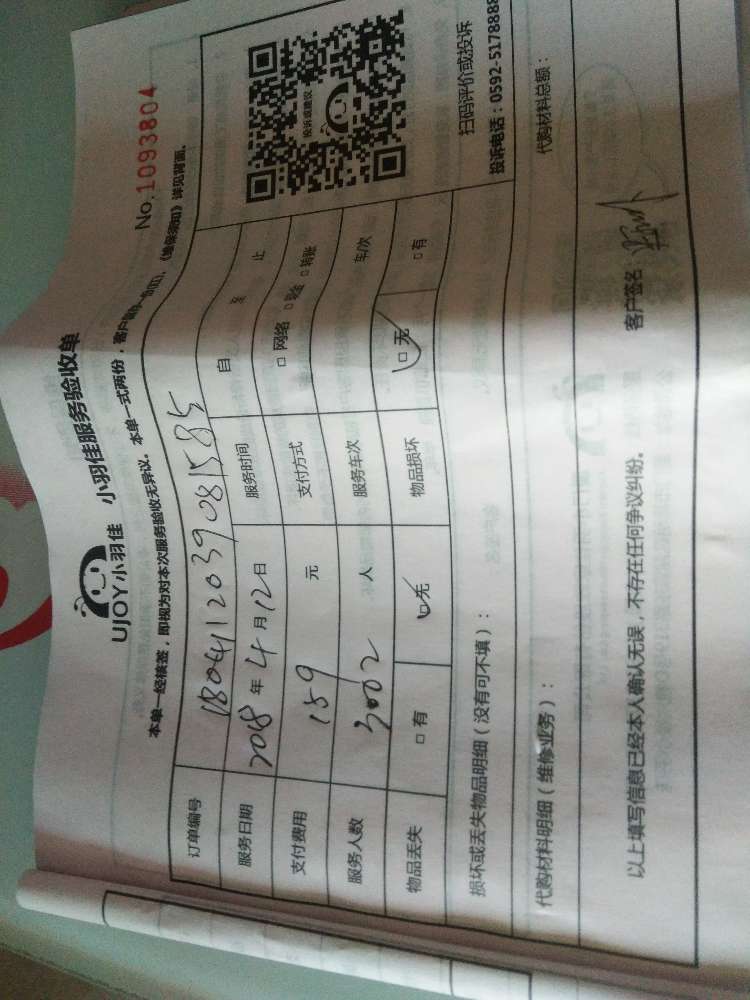 UJOY小羽佳 小羽佳服务验收单
No.1093804
本单一经核签，即视为对本次服务验收无异议。本单一式两份，客户留存一份(红)，《维保须知》详见背面。
订单编号 180412039081585
服务日期 2018 年 4 月 12 日 服务时间 自 至 止
支付费用 159 元 支付方式 □ 网络 □ 现金 □ 转账
服务人数 3002 人 服务车次 车/次
物品丢失 □ 有 □ 无 物品损坏 □ 无 □ 有
投诉或建议
扫码评价或投诉
投诉电话：0592-5178888
损坏或丢失物品明细（没有可不填）：
代购材料明细（维修业务）： 代购材料总额：
以上填写信息已经本人确认无误，不存在任何争议纠纷。 客户签名